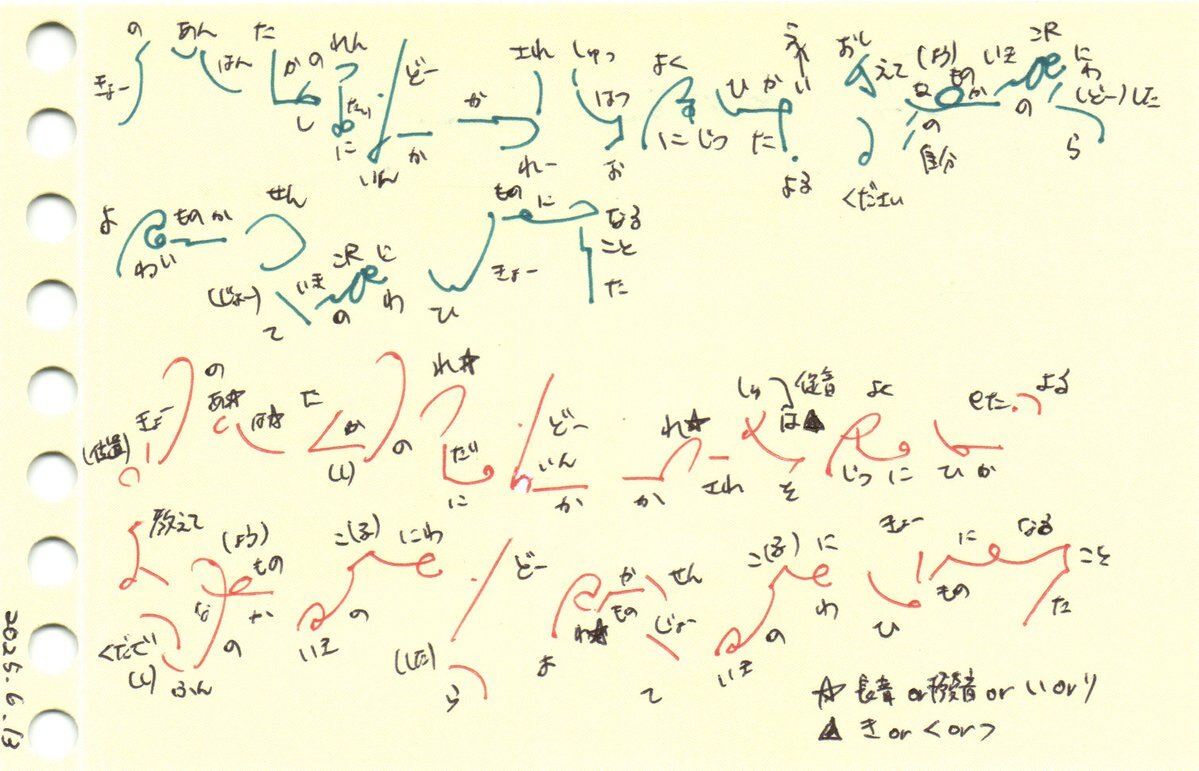 の あん た れん どー か され しゅっ よく ひ か い おし えて (よう) もの いき こR に
きょー はん か の たい れー はつ す に じつ た な か の わ (どー) した
し に いん か お よる ください の 自分 ら
よ もの か せん もの に なる
わい きょー こと
(じょー) いき こR に ひ た
て の わ
の れ☆ しゅ 促音 よく た よる
きょー あ☆ は☆ た どー れ☆ は▲
(位置) か の だい いん され
(し) に か か そ じつ に ひ か
教えて (よう) こ(ろ) にわ どー か せん こ(ろ) に きょー に なる
もの もの じょー わ もの こと
な か の わ☆ の ひ た
くだで の いき (した) よ いき
(し) ふん ら て
☆ 長音 or 撥音 or い or り
▲ き or く or つ
2025.6.13